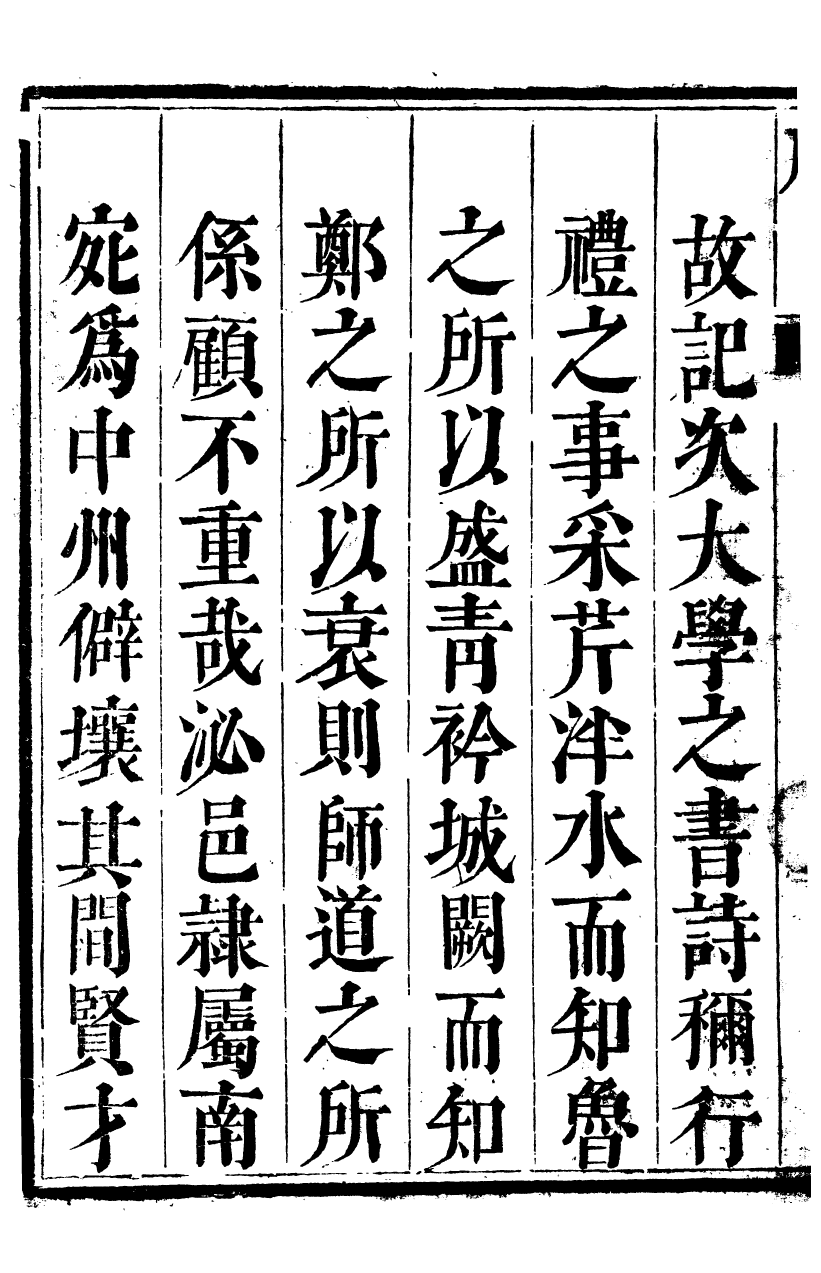 故記次大學之書詩稱行
禮之事采芹泮水而知魯
之所以盛青衿城闕而知
鄭之所以衰則師道之所
係顧不重哉泌邑隷屬南
宛為中州僻壤其間賢才